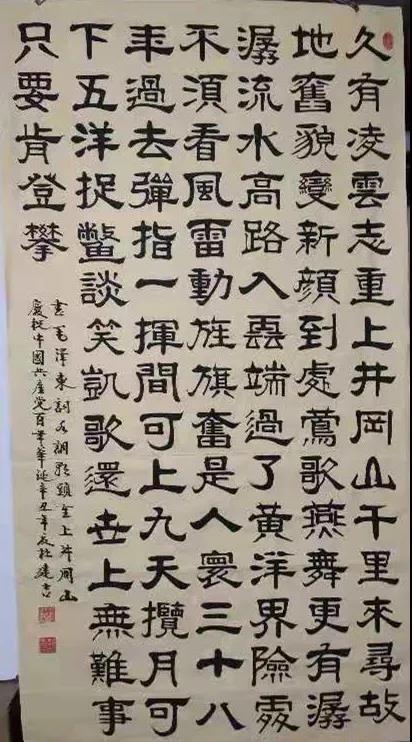 久有凌雲志重上井岡山千里來尋故
地舊貌變新顏到處鶯歌燕舞更有潺
潺流水高路入雲端過了黃洋界險處
不須看風雷動旌旗奮是人寰三十八
年過去彈指一揮間可上九天攬月可
下五洋捉鱉談笑凱歌還世上無難事
只要肯登攀
毛澤東詞水調歌頭重上井岡山
慶祝中國共產党百年華誕辛丑年夏杜建